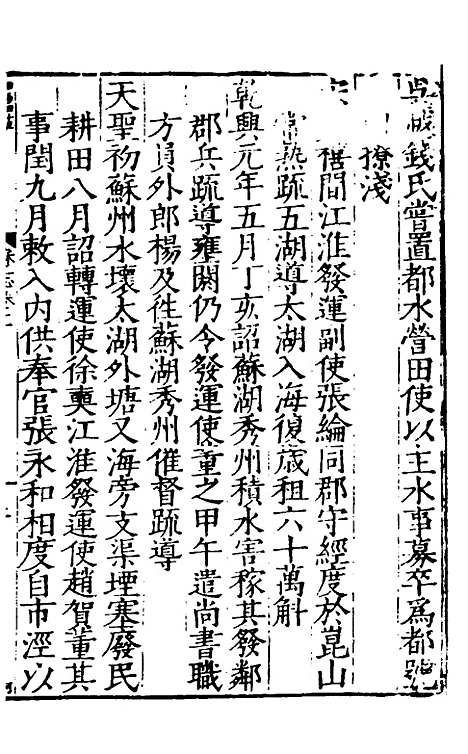 吳越錢氏嘗置都水營田使以主水事募卒爲都號
撩淺
宋 禧間江淮發運副使張綸同郡守經度於崑山
常熟疏五湖導太湖入海復歲租六十萬斛
乾興元年五月丁亥詔蘇湖秀州積水害稼其發鄰
郡兵疏導雍閼仍令發運使董之甲午遣尚書職
方員外郎楊及徃蘇湖秀州催督疏導
天聖初蘇州水壞太湖外塘又海旁支渠堙塞廢民
耕田八月詔轉運使徐奭江淮發運使趙賀董其
事閏九月敕入内供奉官張永和相度自市涇以